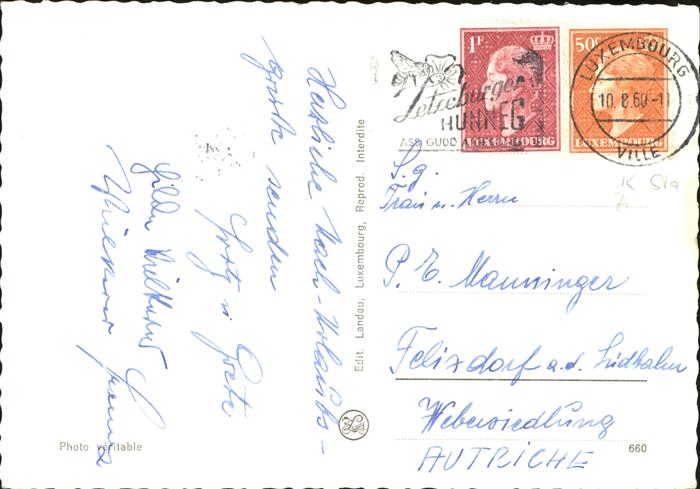 Herzliche Nach-Urlaubs-
grüße senden
Fritz u. Grete
Hilda
Franz
Photo véritable
Edit. Landau, Luxembourg, Reprod. Interdite
1F
50c
LUXEMBOURG
10.8.60-11
VILLE
Letzeburger
HUNNEG
ASS GUDD
LUXEMBOURG
LUXEMBOURG
S.g.
Frau u. Herrn
P. E. Manninger
Felixdorf a.d. Südbahn
Webersiedlung
AUTRICHE
660